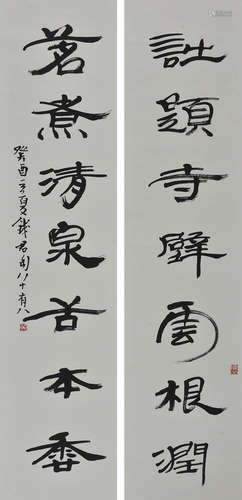 詩題寺壁雲根潤
茗煮清泉舌本香
癸酉夏錢君匋八十有八